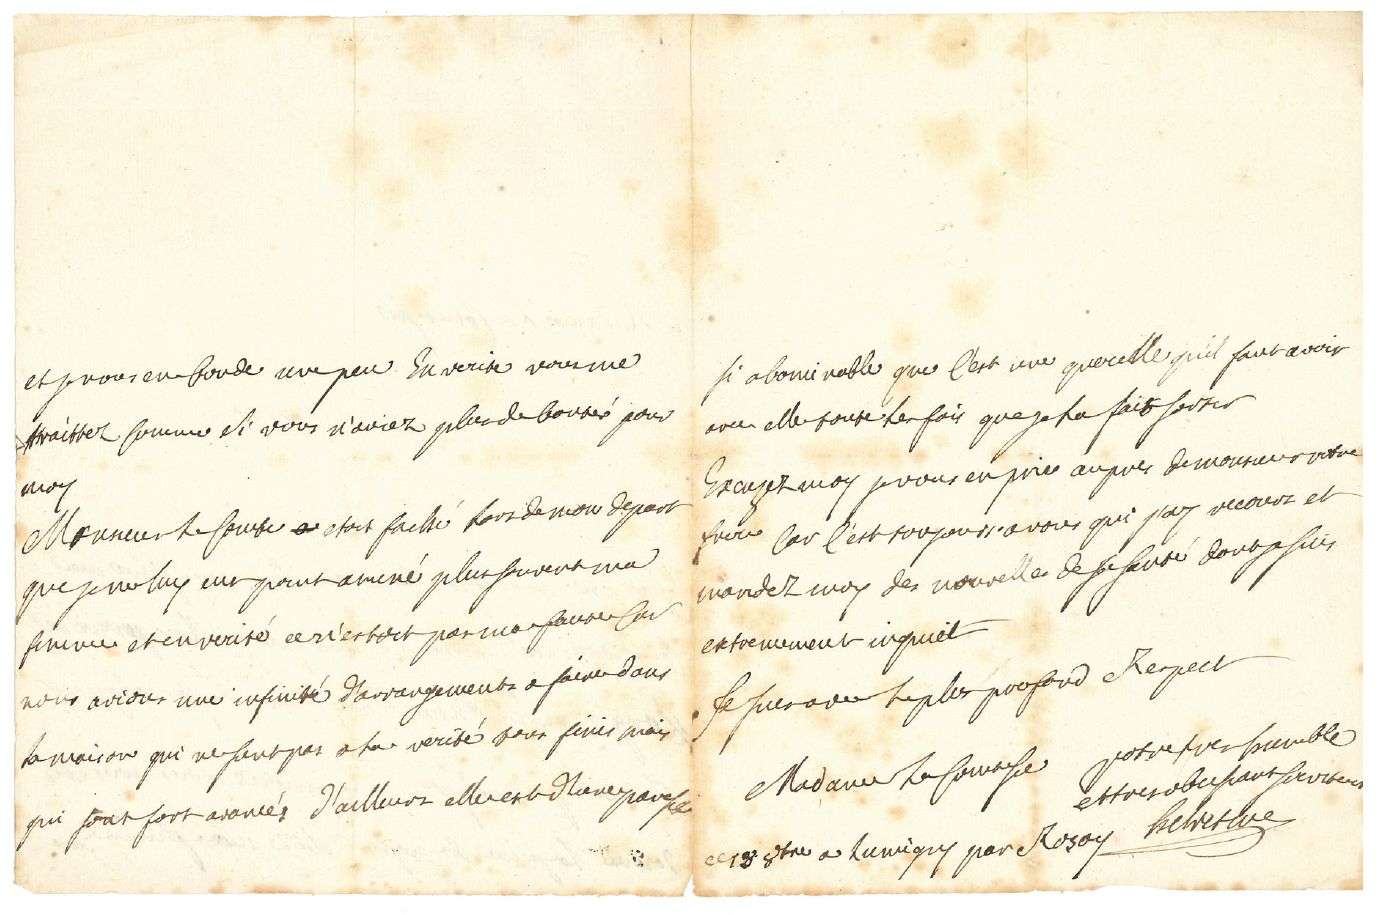 et je vous en bonde un peu En verité vous me
traittez comme si vous n'aviez plus de bontés pour
moy
Monsieur le comte etoit faché lors de mon depart
que je ne luy eus point amené plus souvent ma
femme et en verité ce n'estoit pas ma faute car
nous avions une infinité d'arrangements a faire dans
la maison qui ne sont pas a la verité tous finis mais
qui sont fort avancés D'ailleurs elle est d'une paresse
si abominable que c'est une querelle qu'il faut avoir
avec elle toute les fois que je la fait sortir
Excuzez moy je vous en prie aupres de monsieur votre
frere Car c'est toujours a vous qui j'ay recours et
mandez moy des nouvelles de sa santé dont je suis
extremement inquiet
Je suis avec le plus profond Respect
Madame la Comtesse
votre tres humble
et tres obeissant serviteur
helvetius
ce 18 8bre a Lumigny par Rozoy